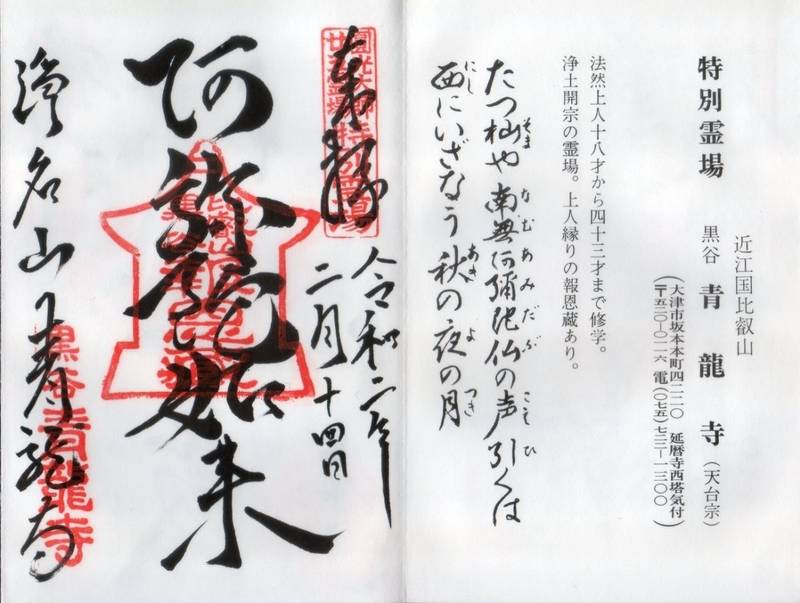 近江国比叡山
特別霊場 黒谷 青龍寺（天台宗）
（大津市坂本本町四二二〇 延暦寺西塔気付
〒五二〇-〇一一六 電(〇七五)七二二-一三〇〇）
法然上人十八才から四十三才まで修学。
浄土開宗の霊場。上人縁りの報恩蔵あり。
たつ杣や南無阿彌陀仏の声引くは
西にいざなう秋の夜の月
奉拝
特別霊場
令和二年
二月十四日
阿弥陀如来
浄名山 青龍寺
黒谷青龍寺